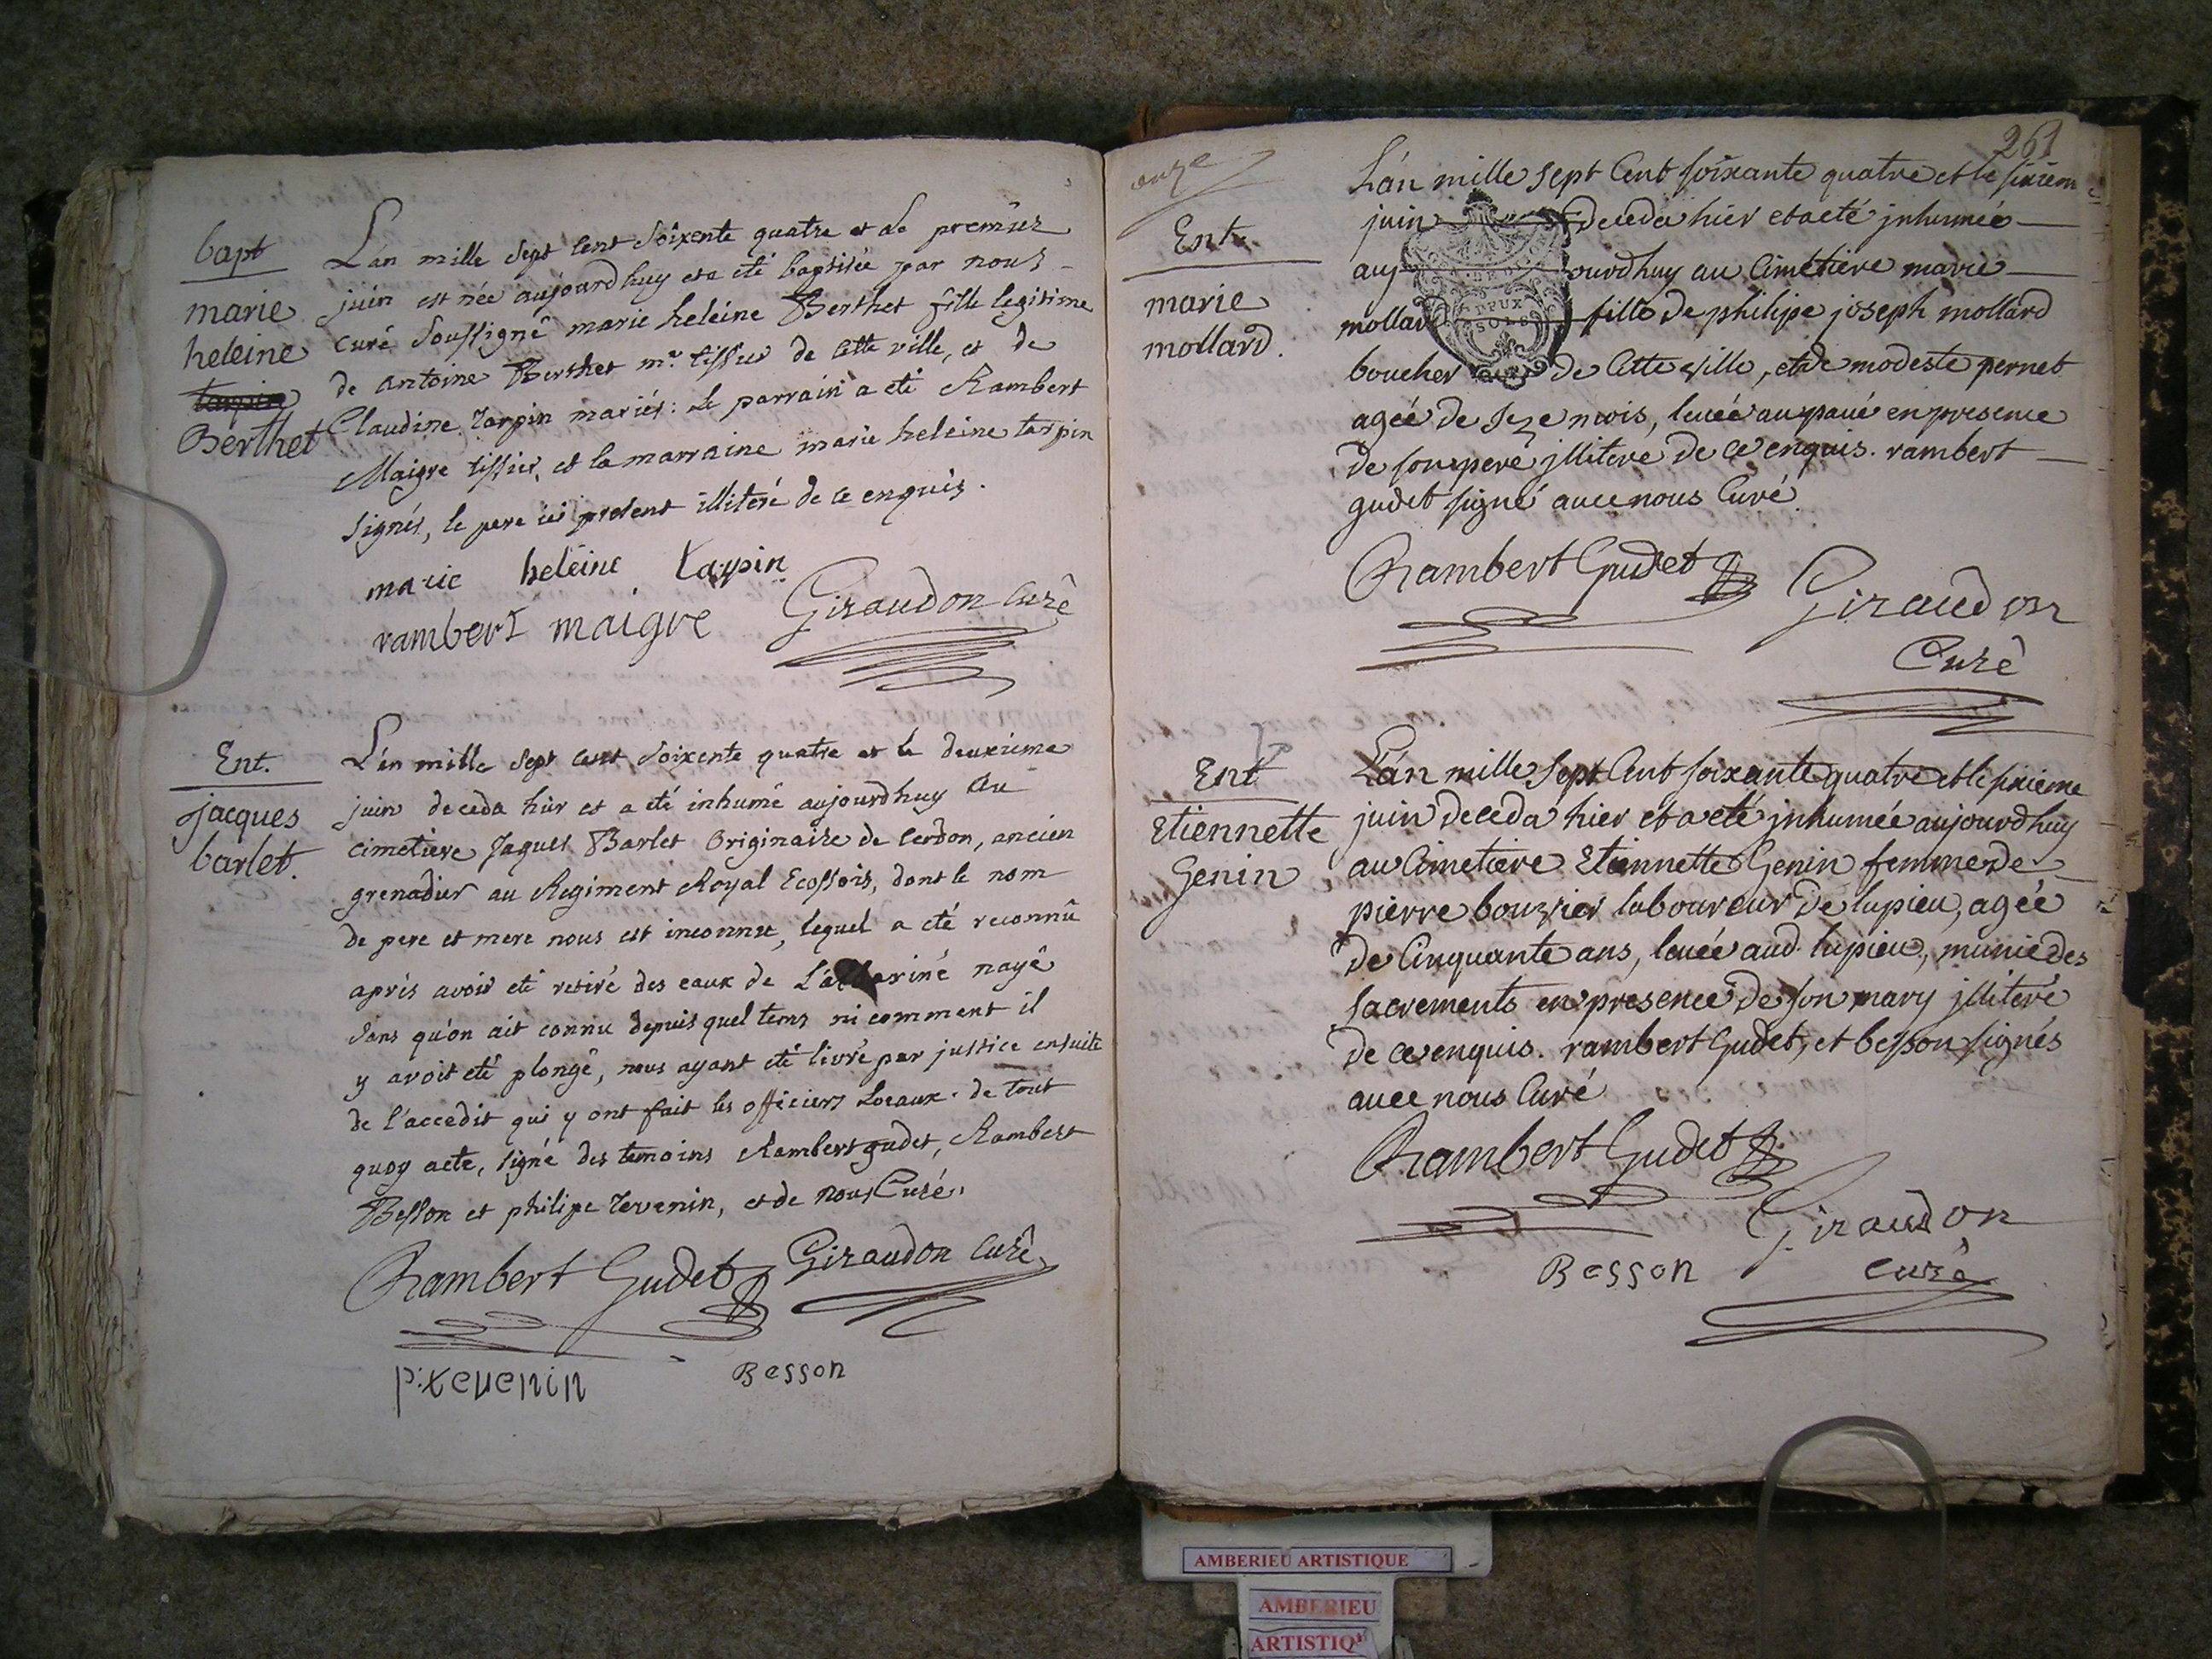 bapt
marie
heleine
tarpin
Berthet
L'án mille sept cent soixente quatre et le premier
juin est née aujourdhuy et a eté baptisée par nous
curé soussigné marie heleine Berthet fille legitime
de antoine Berthet me. tissier de cette ville, et de
Claudine Tarpin mariés: le parrain a eté Rambert
Maigre tissier, et la marraine marie heleine tarpin
signés, le pere ici present illiteré de ce enquis.
marie heleine tarpin
rambert maigre Giraudon curé
Ent.
jacques
barlet.
L'én mille sept cent soixente quatre et le deuxieme
juin deceda hier et a eté inhumé aujourdhuy au
cimetiere Jaques Barlet originaire de Cerdon, ancien
grenadier au Regiment Royal Ecossois, dont le nom
de pere et mere nous est inconnu, lequel a eté reconnû
aprés avoir eté retiré des eaux de nayé
sans qu'on ait connu depuis quel tems ni comment il
y avoit eté plongé, nous ayant eté livré par justice ensuite
de l'accedit qui y ont fait les officiers Locaux. de tout
quoy acte, signé des temoins Rambert gudet, Rambert
Besson et philipe Tevenin, et de nous Curé.
Rambert Gudet Giraudon curé
p: tevenin Besson
onze
261
Ent.
marie
mollard.
L'án mille sept Cent soixante quatre et le sixiem
juin deceda hier et a eté jnhumée
auj ourdhuy au Cimetiere marie
mollard fille de philipe joseph mollard
boucher de Cette ville, et de modeste pernet
ageé de seze mois, leueé au paué en presence
de son pere jlliteré de ce enquis. rambert
gudet signé auec nous Curé.
Rambert Gudet Giraudon
Curé
Ent
Etiennette
Genin
L'án mille sept Cent soixante quatre et le sixieme
juin deceda hier et a eté jnhumée aujourdhuy
au Cimetiere Etiennette Genin femme de
pierre bouvier laboureur de lupieu, ageé
de Cinquante ans, leueé aud. lupieu, munie des
sacrements en presence de son mary jlliteré
de ce enquis. rambert Gudet, et besson signés
auec nous Curé
Rambert Gudet
Giraudon
Besson curé
AMBERIEU ARTISTIQUE
AMBERIEU
ARTISTIQ